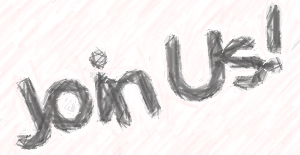 Join Us!